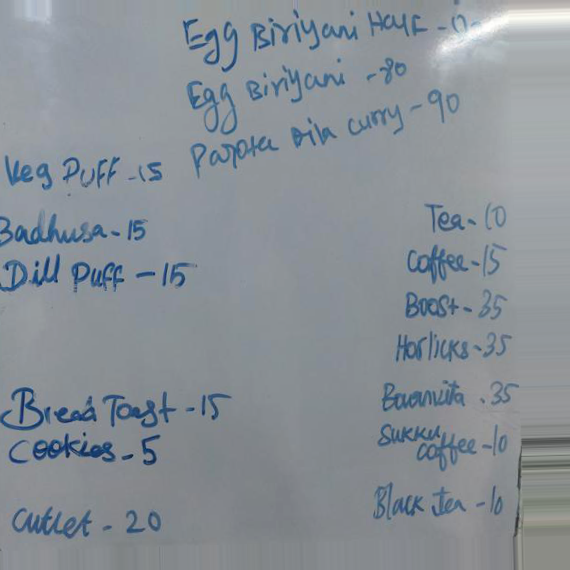 Egg Biriyani Half -
Egg Biriyani -80
Parota with curry - 90
Veg Puff - 15
Badhusa - 15
Dill Puff - 15
Bread Toast - 15
Cookies - 5
Cutlet - 20
Tea - 10
Coffee - 15
Boost - 35
Horlicks - 35
Bournvita . 35
Sukku
coffee - 10
Black Tea - 10